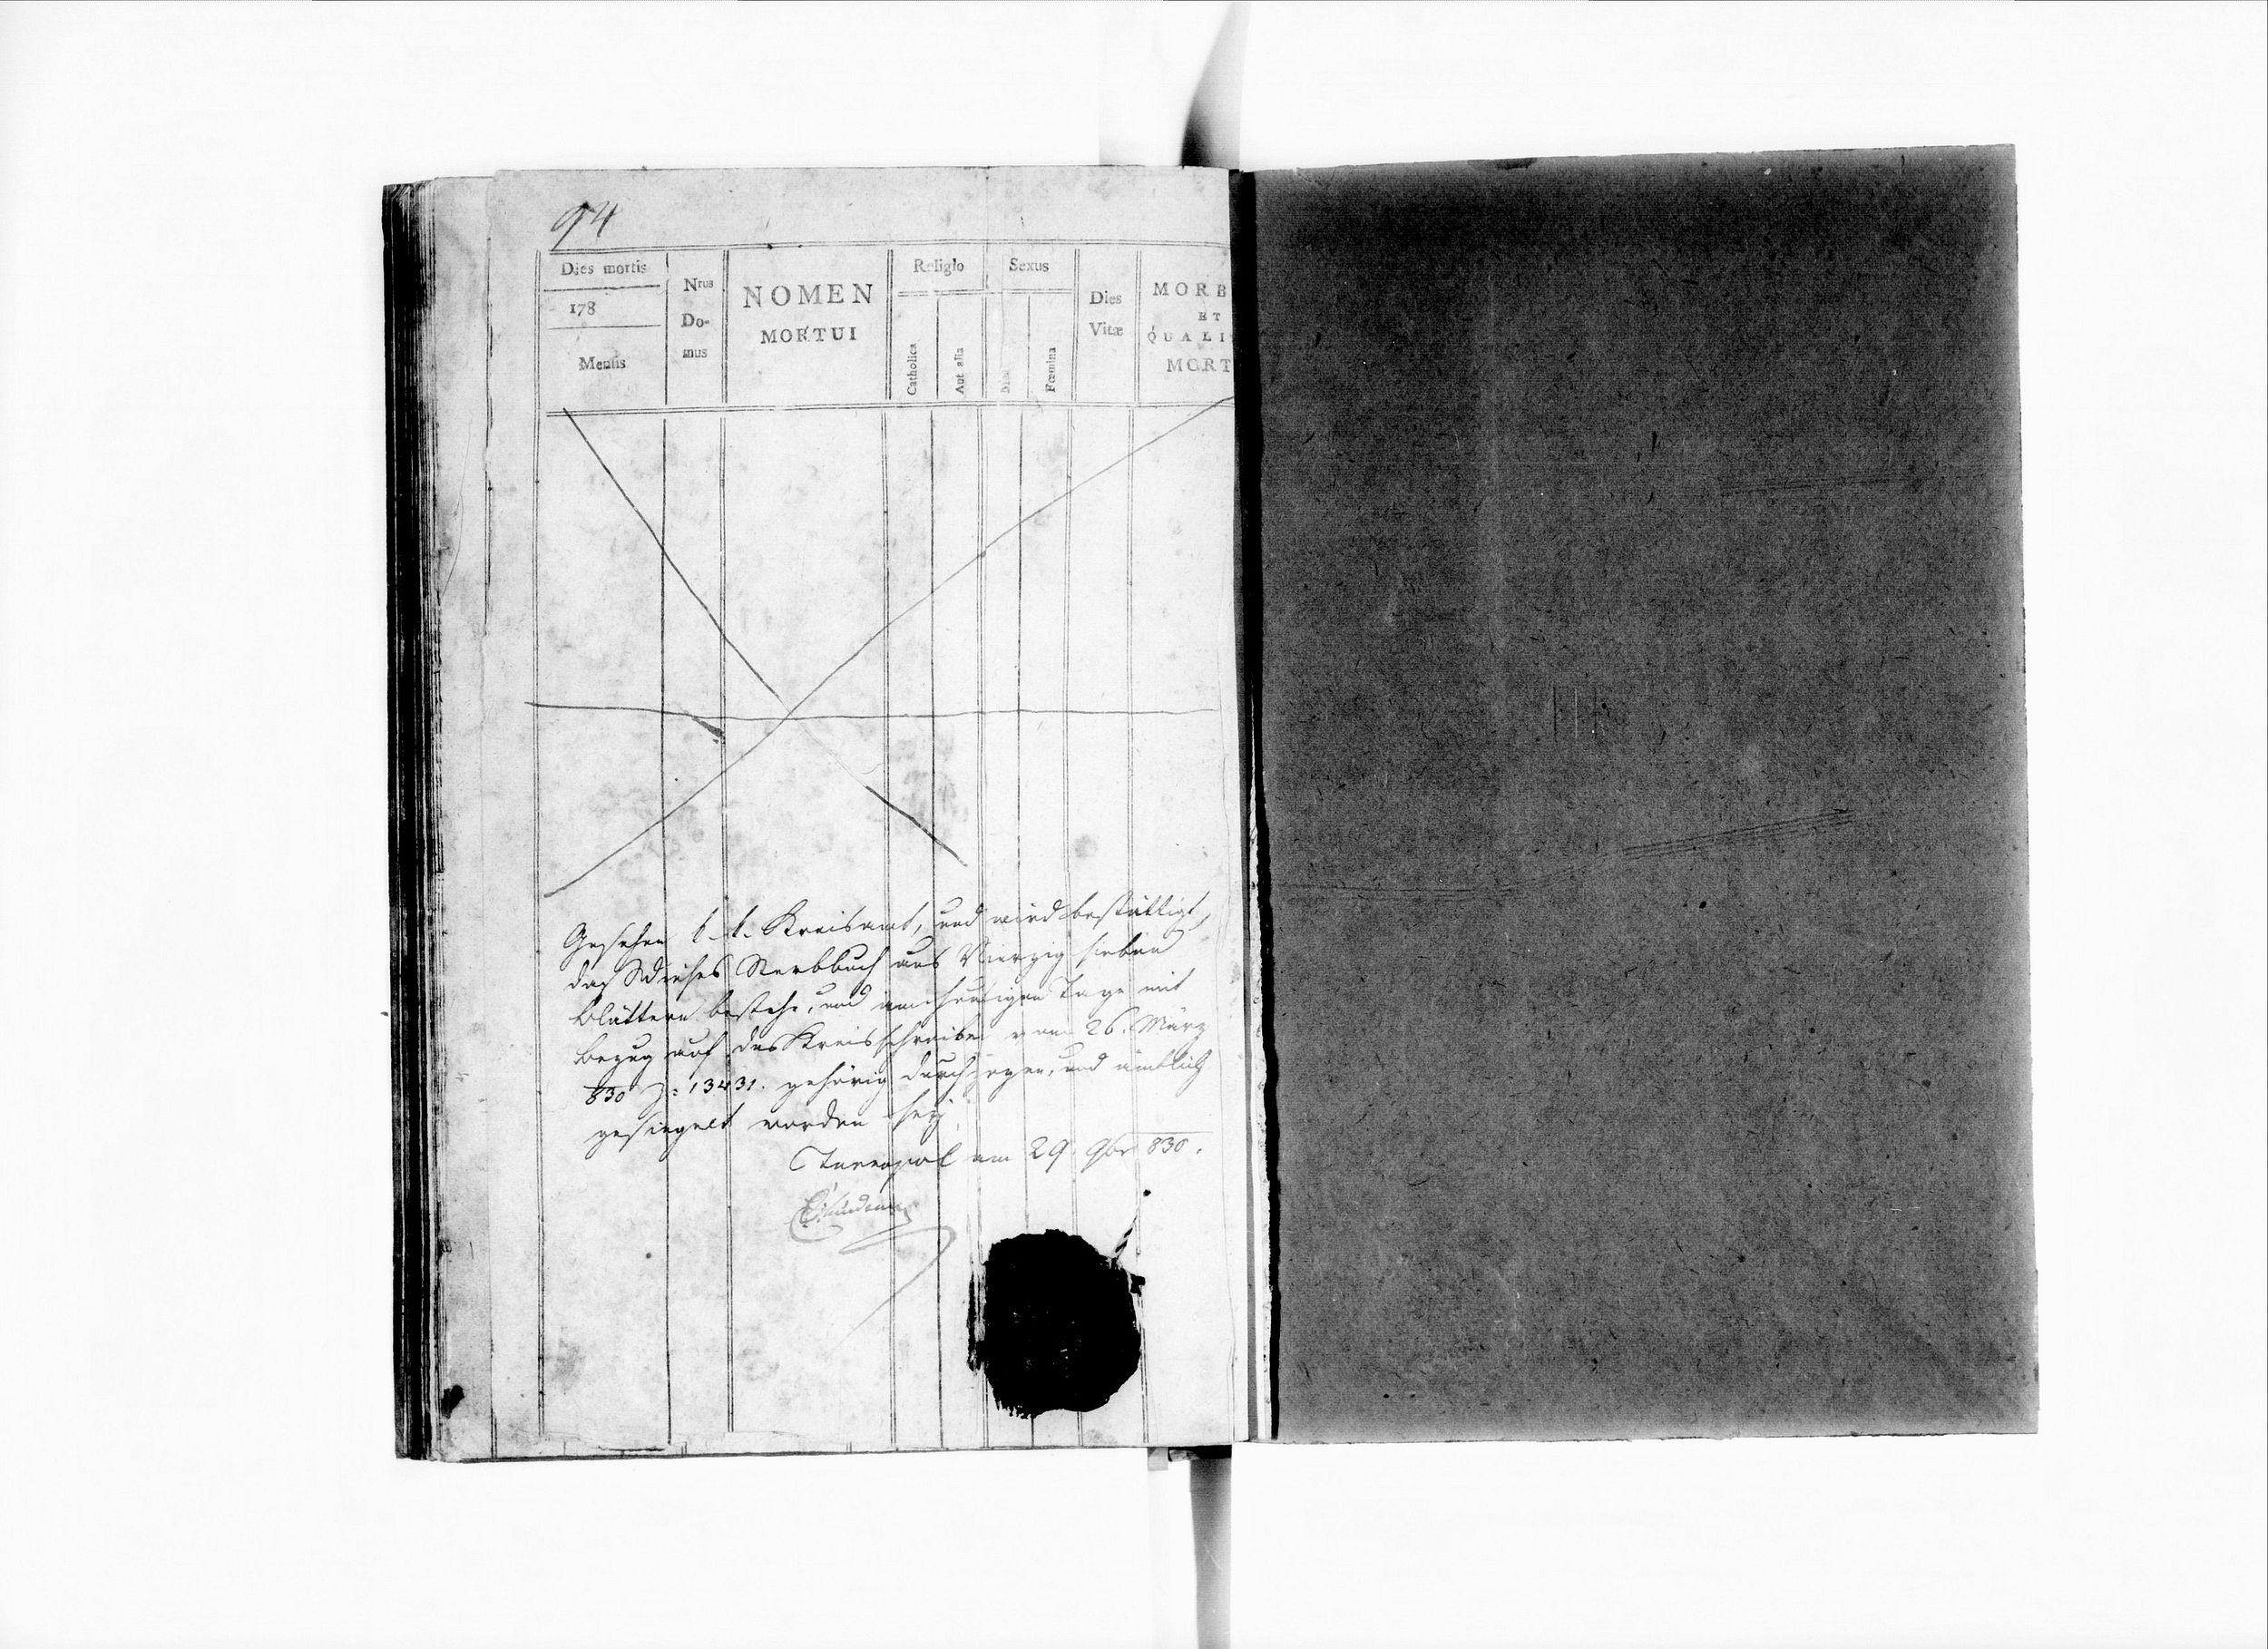 94
Dies mortis
178
Mensis
Nrus
Do-
mus
NOMEN
MORTUI
Religio
Catholica
Aut alia
Sexus
Fœmina
Dies
Vitæ
MORB
ET
QUALI
MORT
Gesehen k. k. Kreisamt, und wird bestättigt,
daß dieses Sterbbuch aus Vierzig sieben
Blättern bestehe, und am heutigen Tage mit
Bezug auf das Kreisschreiben vom 26. März
830 Z: 13431. gehörig durchzogen, und ämtlich
gesiegelt worden sey.
Tarnopol am 29. 9br 830.